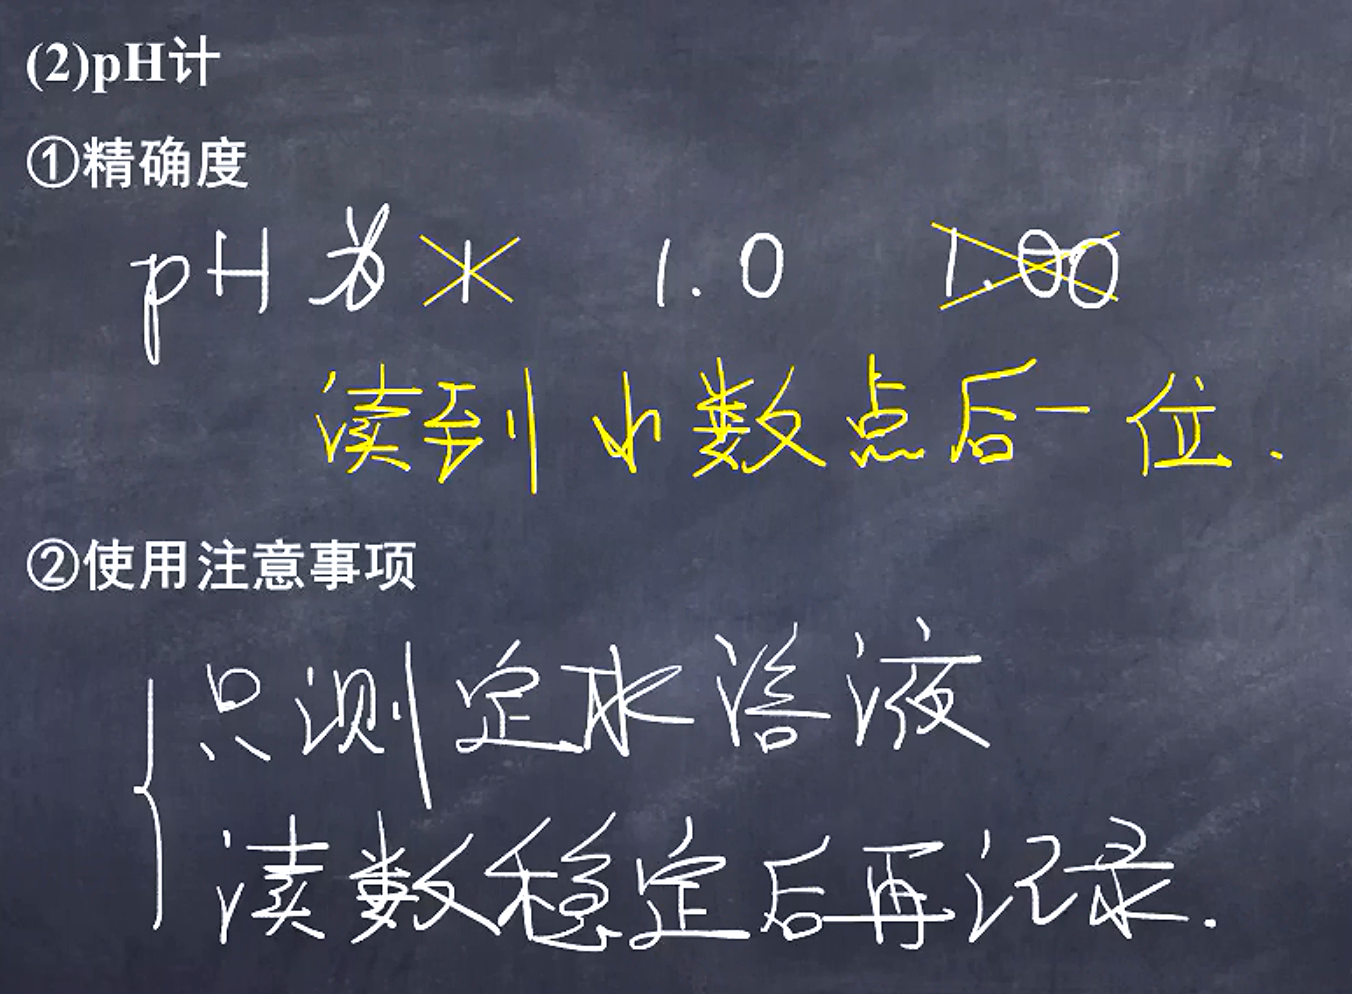 (2)pH计
①精确度
pH 为 1 1.0 1.00
读到小数点后一位.
②使用注意事项
只测定水溶液
读数稳定后再记录.